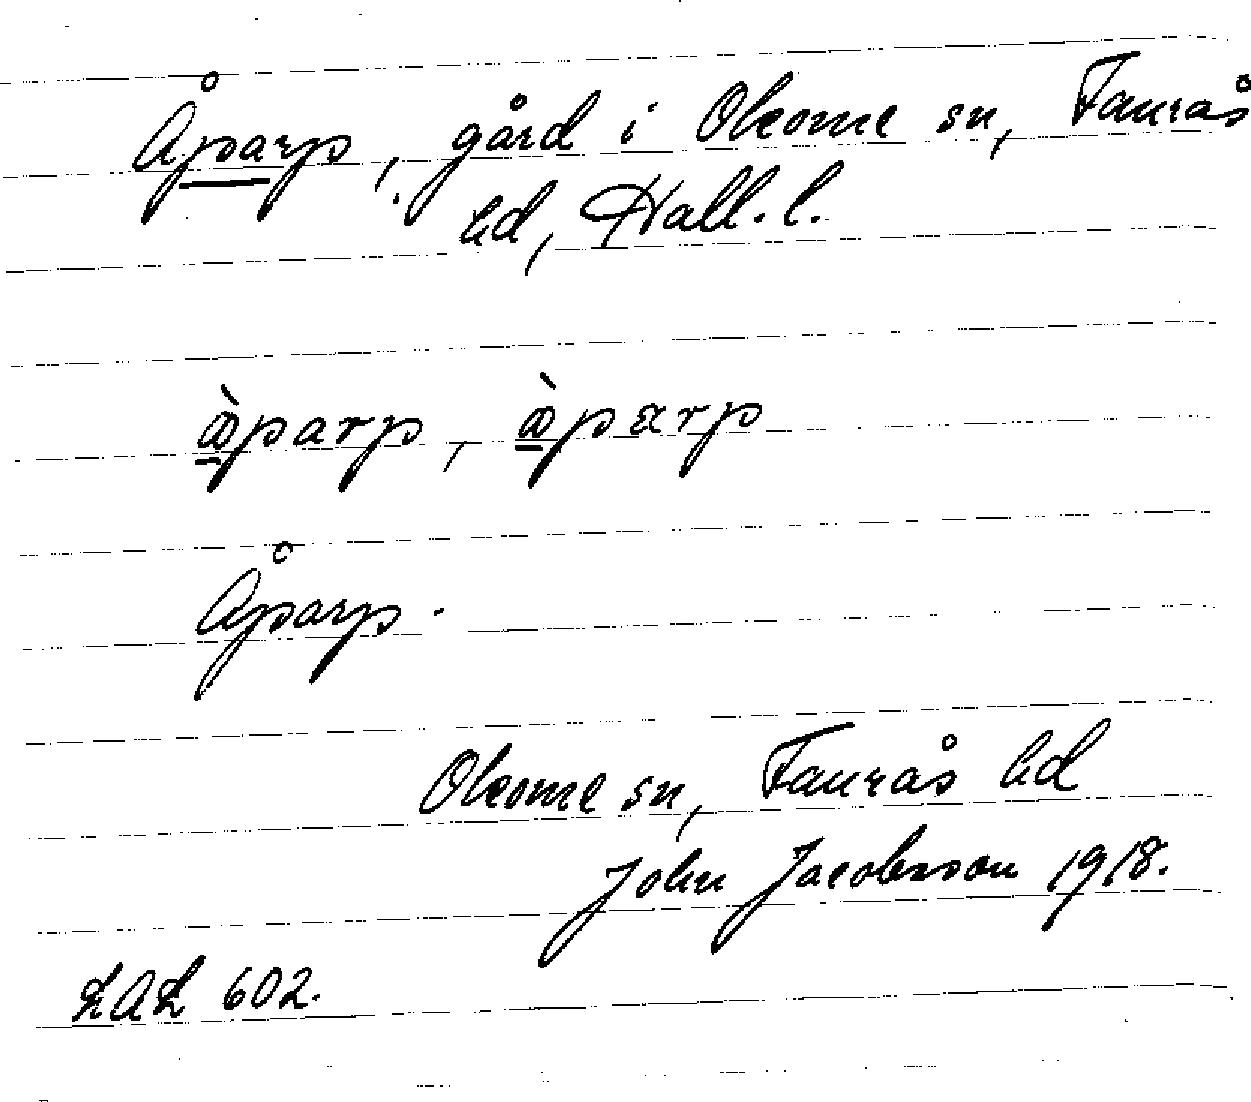 Åparp, gård i Okome sn, Faurås
hd, Hall. l.
å̀parp, å̀pärp
Åparp.
Okome sn, Faurås hd
John Jacobsson 1918.
LAL 602.